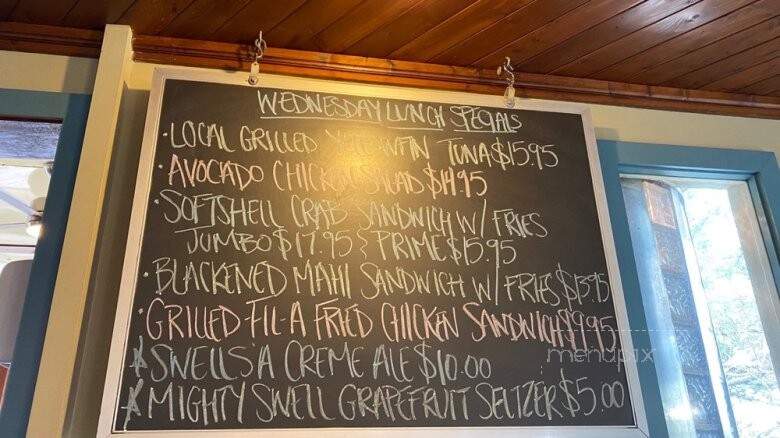 WEDNESDAY LUNCH SPECIALS
· LOCAL GRILLED YELLOWFIN TUNA $15.95
· AVOCADO CHICKEN SALAD $14.95
· SOFTSHELL CRAB SANDWICH W/ FRIES
JUMBO $17.95 & PRIME $15.95
· BLACKENED MAHI SANDWICH W/ FRIES $13.95
· GRILLED-FIL-A FRIED CHICKEN SANDWICH $9.95
menupix
SNELLS A CREME ALE $10.00
MIGHTY SWELL GRAPEFRUIT SELTZER $5.00